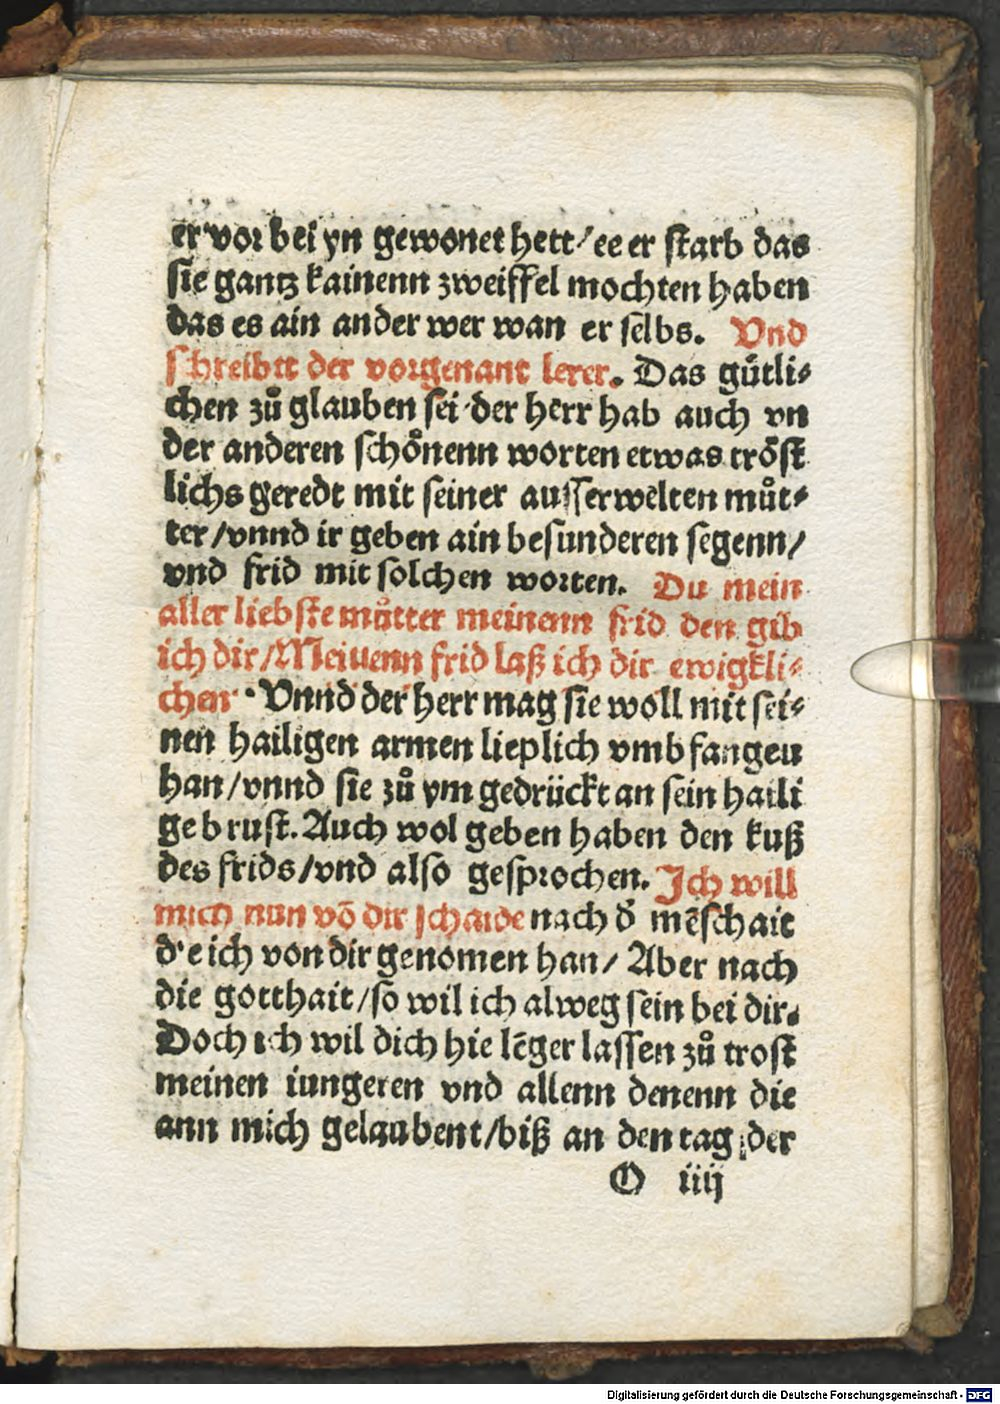 er vor bei yn gewonet hett / ee er starb das
sie gantz kainenn zweiffel mochten haben
das es ain ander wer wan er selbs. Vnd
schreibtt der vorgenant lerer. Das gůtli⸗
chen zů glauben sei der herr hab auch vn
der anderen schoͤnenn worten etwas troͤst
lichs geredt mit seiner ausserwelten můt⸗
ter / vnnd ir geben ain besunderen segenn /
vnd frid mit solchen worten. Du mein
aller liebste můtter meinenn frid den gib
ich dir / Meinenn frid laß ich dir ewigkli⸗
chen · Vnnd der herr mag sie woll mit sei⸗
nen hailigen armen lieplich vmbfangen
han / vnnd sie zů ym gedrückt an sein haili
ge brust. Auch wol geben haben den kuß
des frids / vnd also gesprochen. Ich will
mich nun võ dir schaide nach d̕ mẽschait
die ich von dir genomen han / Aber nach
die gotthait / so wil ich alweg sein bei dir.
Doch ich wil dich hie lẽger lassen zů trost
meinen iungeren vnd allenn denenn die
ann mich gelaubent / biß an den tag der
O iiij
Digitalisierung gefördert durch die Deutsche Forschungsgemeinschaft - DFG